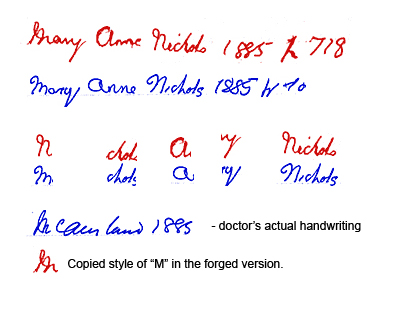 Mary Anne Nichols 1885 h 718
Mary Anne Nichols 1885 W 70
N chols A ry Nichols
M chols a ry Nichols
McCausland 1885 - doctor's actual handwriting
M Copied style of "M" in the forged version.